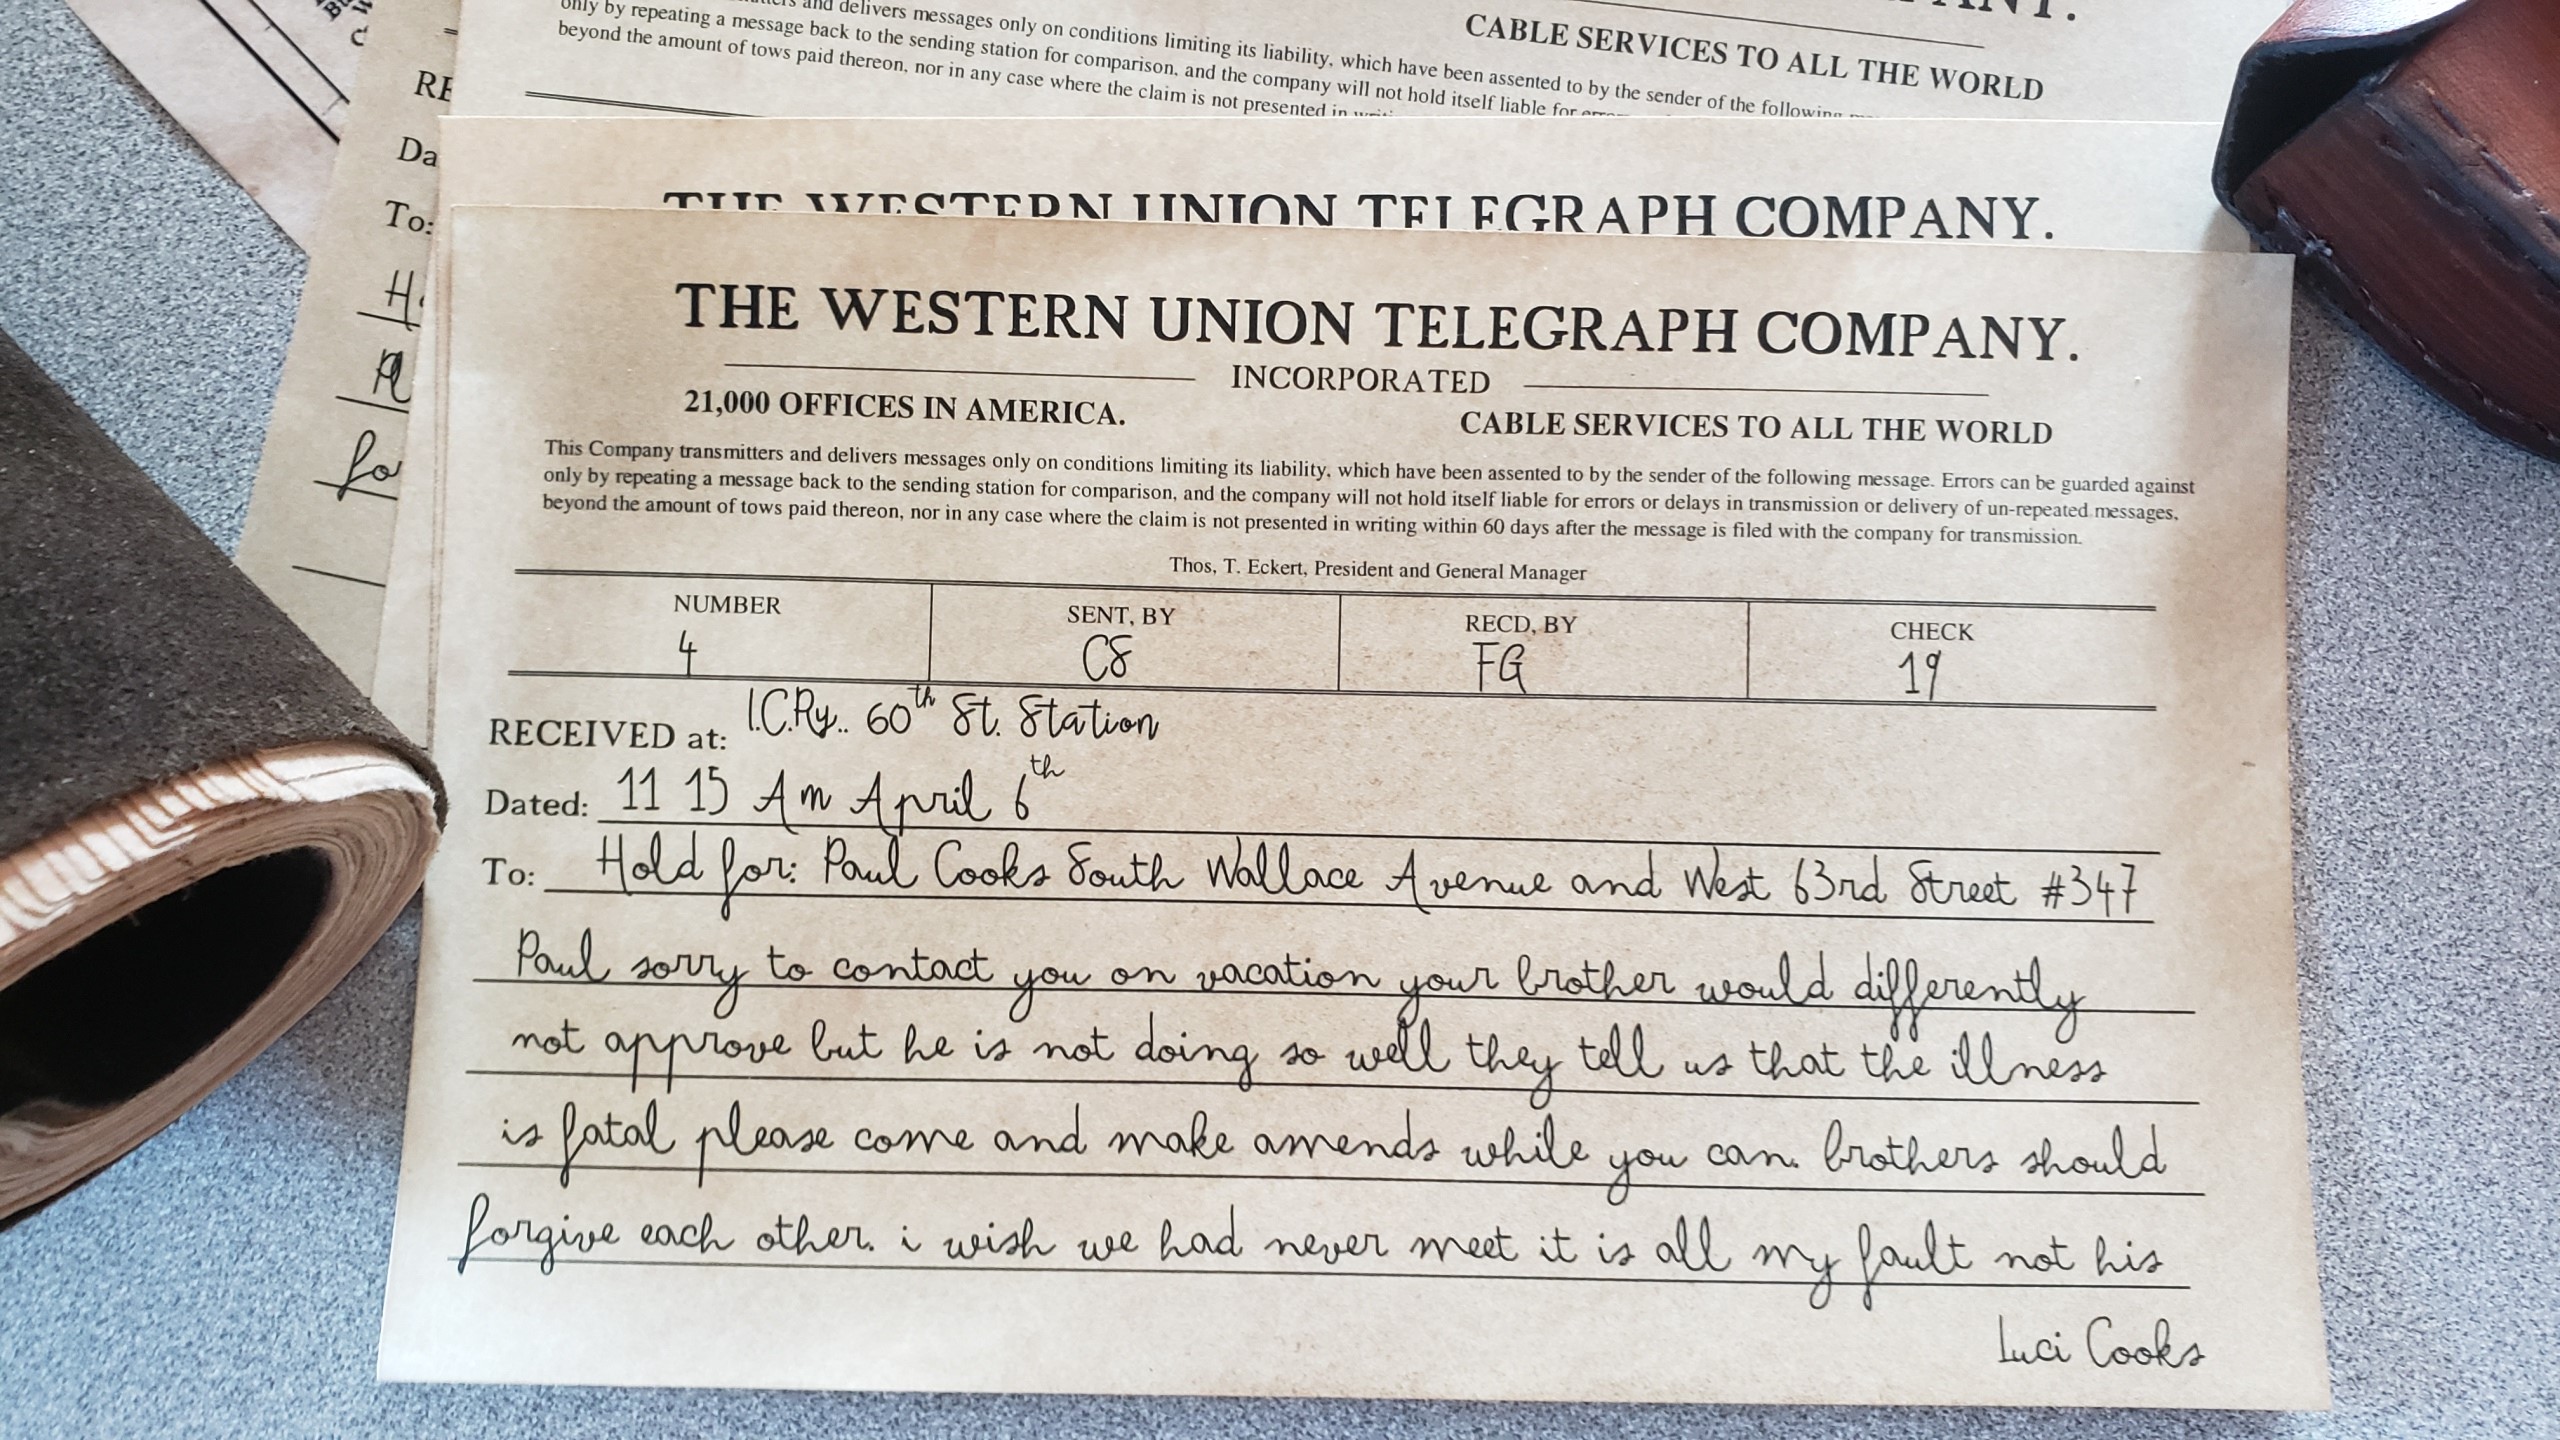 ANY.
CABLE SERVICES TO ALL THE WORLD
and delivers messages only on conditions limiting its liability, which have been assented to by the sender of the following
only by repeating a message back to the sending station for comparison, and the company will not hold itself liable for
beyond the amount of tows paid thereon, nor in any case where the claim is not presented in
RE
Da
To:
H
fo
THE WESTERN UNION TELEGRAPH COMPANY.
THE WESTERN UNION TELEGRAPH COMPANY.
INCORPORATED
21,000 OFFICES IN AMERICA.
CABLE SERVICES TO ALL THE WORLD
This Company transmitters and delivers messages only on conditions limiting its liability, which have been assented to by the sender of the following message. Errors can be guarded against
only by repeating a message back to the sending station for comparison, and the company will not hold itself liable for errors or delays in transmission or delivery of un-repeated messages,
beyond the amount of tows paid thereon, nor in any case where the claim is not presented in writing within 60 days after the message is filed with the company for transmission.
Thos, T. Eckert, President and General Manager
NUMBER SENT, BY RECD, BY CHECK
4 C8 FG 19
RECEIVED at: I.C.Ry.. 60th St. Station
Dated: 11 15 Am April 6th
To: Hold for: Paul Cooks South Wallace Avenue and West 63rd Street #347
Paul sorry to contact you on vacation your brother would differently
not approve but he is not doing so well they tell us that the illness
is fatal please come and make amends while you can. brothers should
forgive each other. i wish we had never meet it is all my fault not his
Luci Cooks